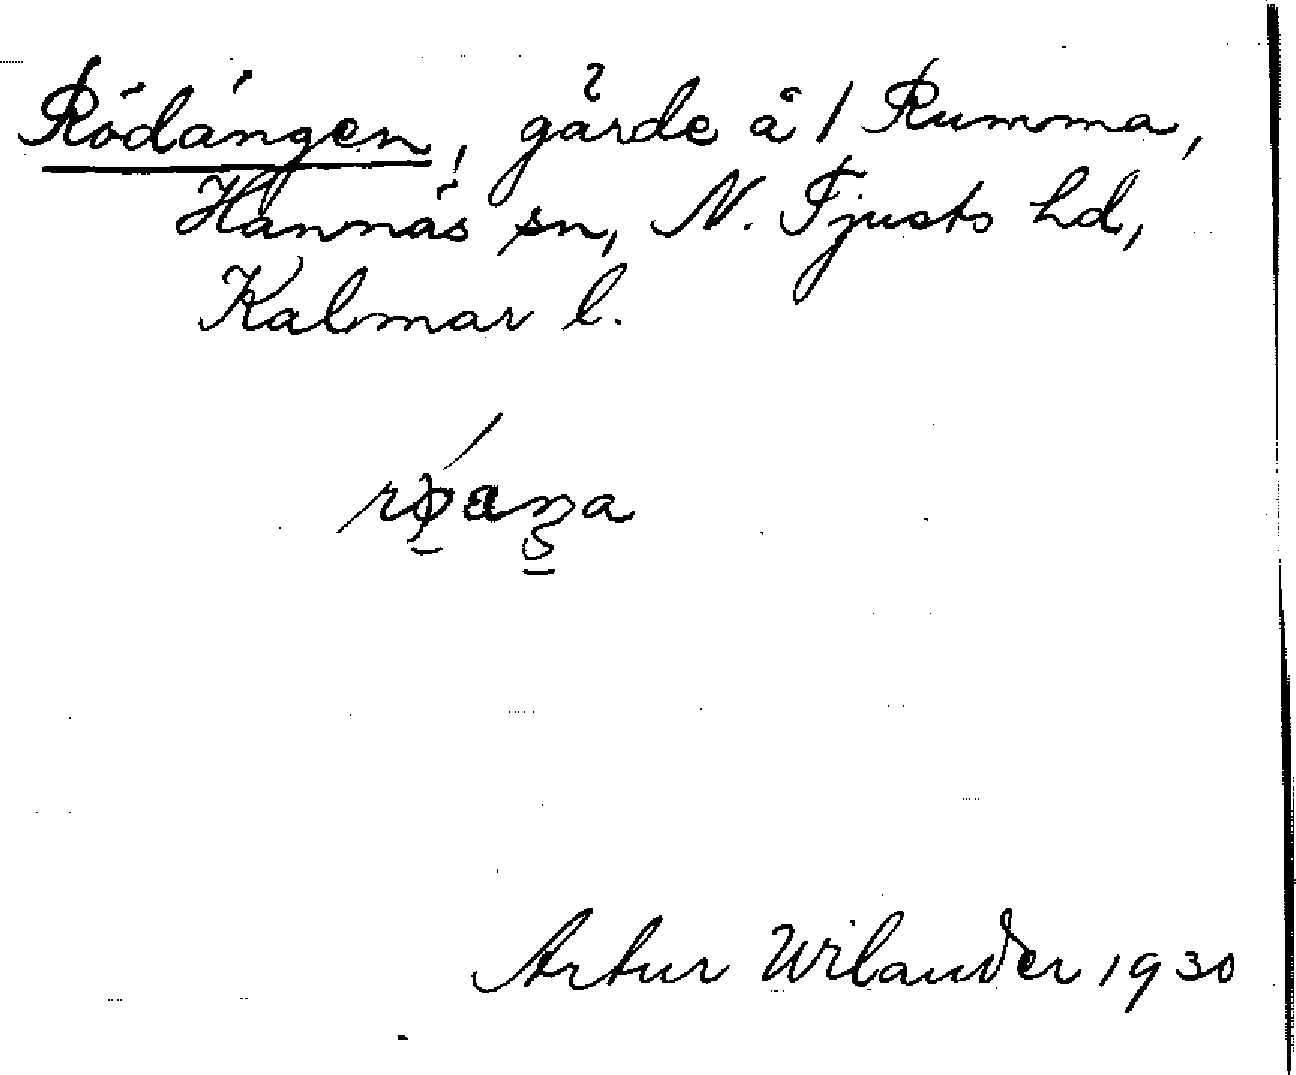 Rödängen, gärde å 1 Rumma,
Hannäs sn, N. Tjusts hd,
Kalmar l.
Artur Wilander 1930